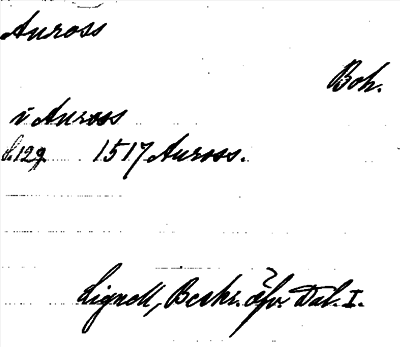 Anross
Boh.
i Anross
s. 129. 1517 Anross.
Lignell, Beskr. öfv. Dal. I.